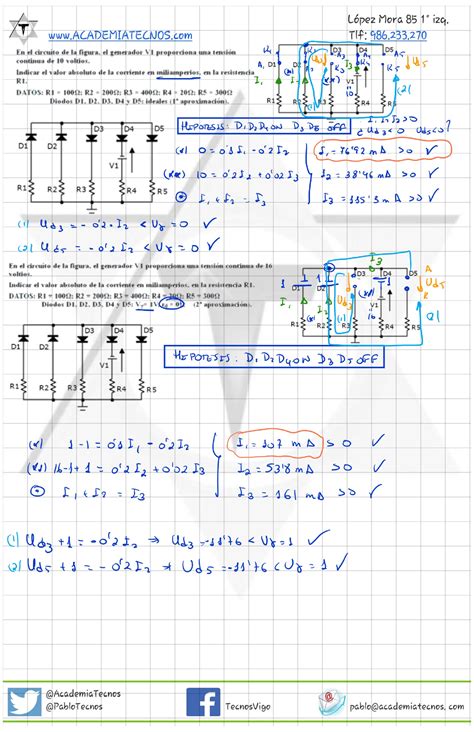 López Mora 85 1º izq.
www.ACADEMIATECNOS.com
Tlf: 986,233,270
En el circuito de la figura, el generador V1 proporciona una tensión
continua de 10 voltios.
Indicar el valor absoluto de la corriente en miliamperios, en la resistencia
R1.
DATOS: R1 = 100Ω: R2 = 200Ω: R3 = 400Ω: R4 = 20Ω: R5 = 300Ω
Diodos D1, D2, D3, D4 y D5: ideales (1ª aproximación).
HIPOTESIS: D1 D2 D4 ON D3 D5 OFF
I1, I2 > 0
¿ Ud3 < 0 Ud5 < 0?
D1 D2 D3 D4 D5
V1
R1 R2 R3 R4 R5
(x) 0 = 0'1 I1 - 0'2 I2
I1 = 76'92 mA > 0 ✓
(xx) 10 = 0'2 I2 + 0'02 I3
I2 = 38'46 mA > 0 ✓
I1 + I2 = I3
I3 = 115'3 mA > 0 ✓
(1) Ud3 = - 0'2 · I2 < Vγ = 0 ✓
(2) Ud5 = - 0'2 I2 < Vγ = 0 ✓
En el circuito de la figura, el generador V1 proporciona una tensión continua de 16
voltios.
Indicar el valor absoluto de la corriente en miliamperios, en la resistencia R1.
DATOS: R1 = 100Ω: R2 = 200Ω: R3 = 400Ω: R4 = 20Ω: R5 = 300Ω
Diodos D1, D2, D3, D4 y D5: Vγ = 1V (2ª aproximación).
D1 D2 D3 D4 D5
V1
R1 R2 R3 R4 R5
HIPOTESIS: D1 D2 D4 ON D3 D5 OFF
(x) 1-1 = 0'1 I1 - 0'2 I2
I1 = 107 mA > 0 ✓
(xx) 16-1+1 = 0'2 I2 + 0'02 I3
I2 = 53'8 mA > 0 ✓
I1 + I2 = I3
I3 = 161 mA > 0 ✓
(1) Ud3 + 1 = - 0'2 I2 ⇒ Ud3 = -11'76 < Vγ = 1 ✓
(2) Ud5 + 1 = - 0'2 I2 ⇒ Ud5 = -11'76 < Vγ = 1 ✓
@AcademiaTecnos
@PabloTecnos
TecnosVigo
pablo@academiatecnos.com